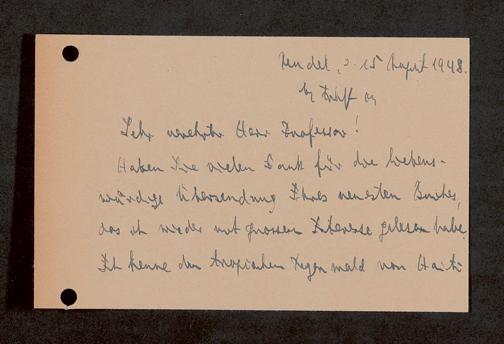 15 August 1948.
Sehr verehrter Herr Professor!
Haben Sie vielen Dank für die liebens-
würdige Übersendung Ihres neuesten Buches,
das ich wieder mit grossem Interesse gelesen habe.
Ich kenne den tropischen Regenwald von Haiti